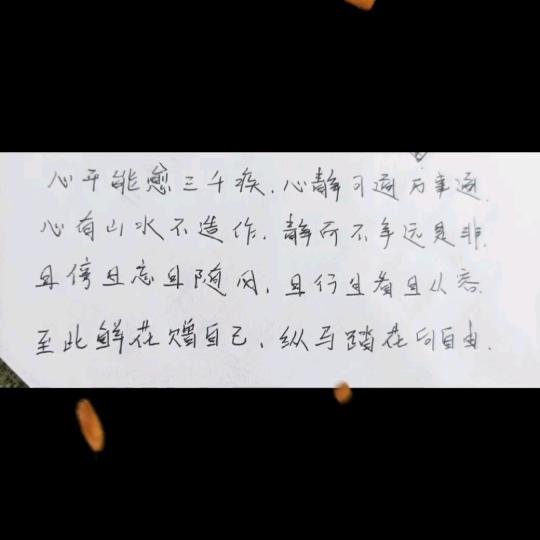 心平能愈三千疾，心静可通万事通。
心有山水不造作，静而不争远是非。
且停且忘且随风，且行且看且从容。
至此鲜花赠自己，纵马踏花向自由。